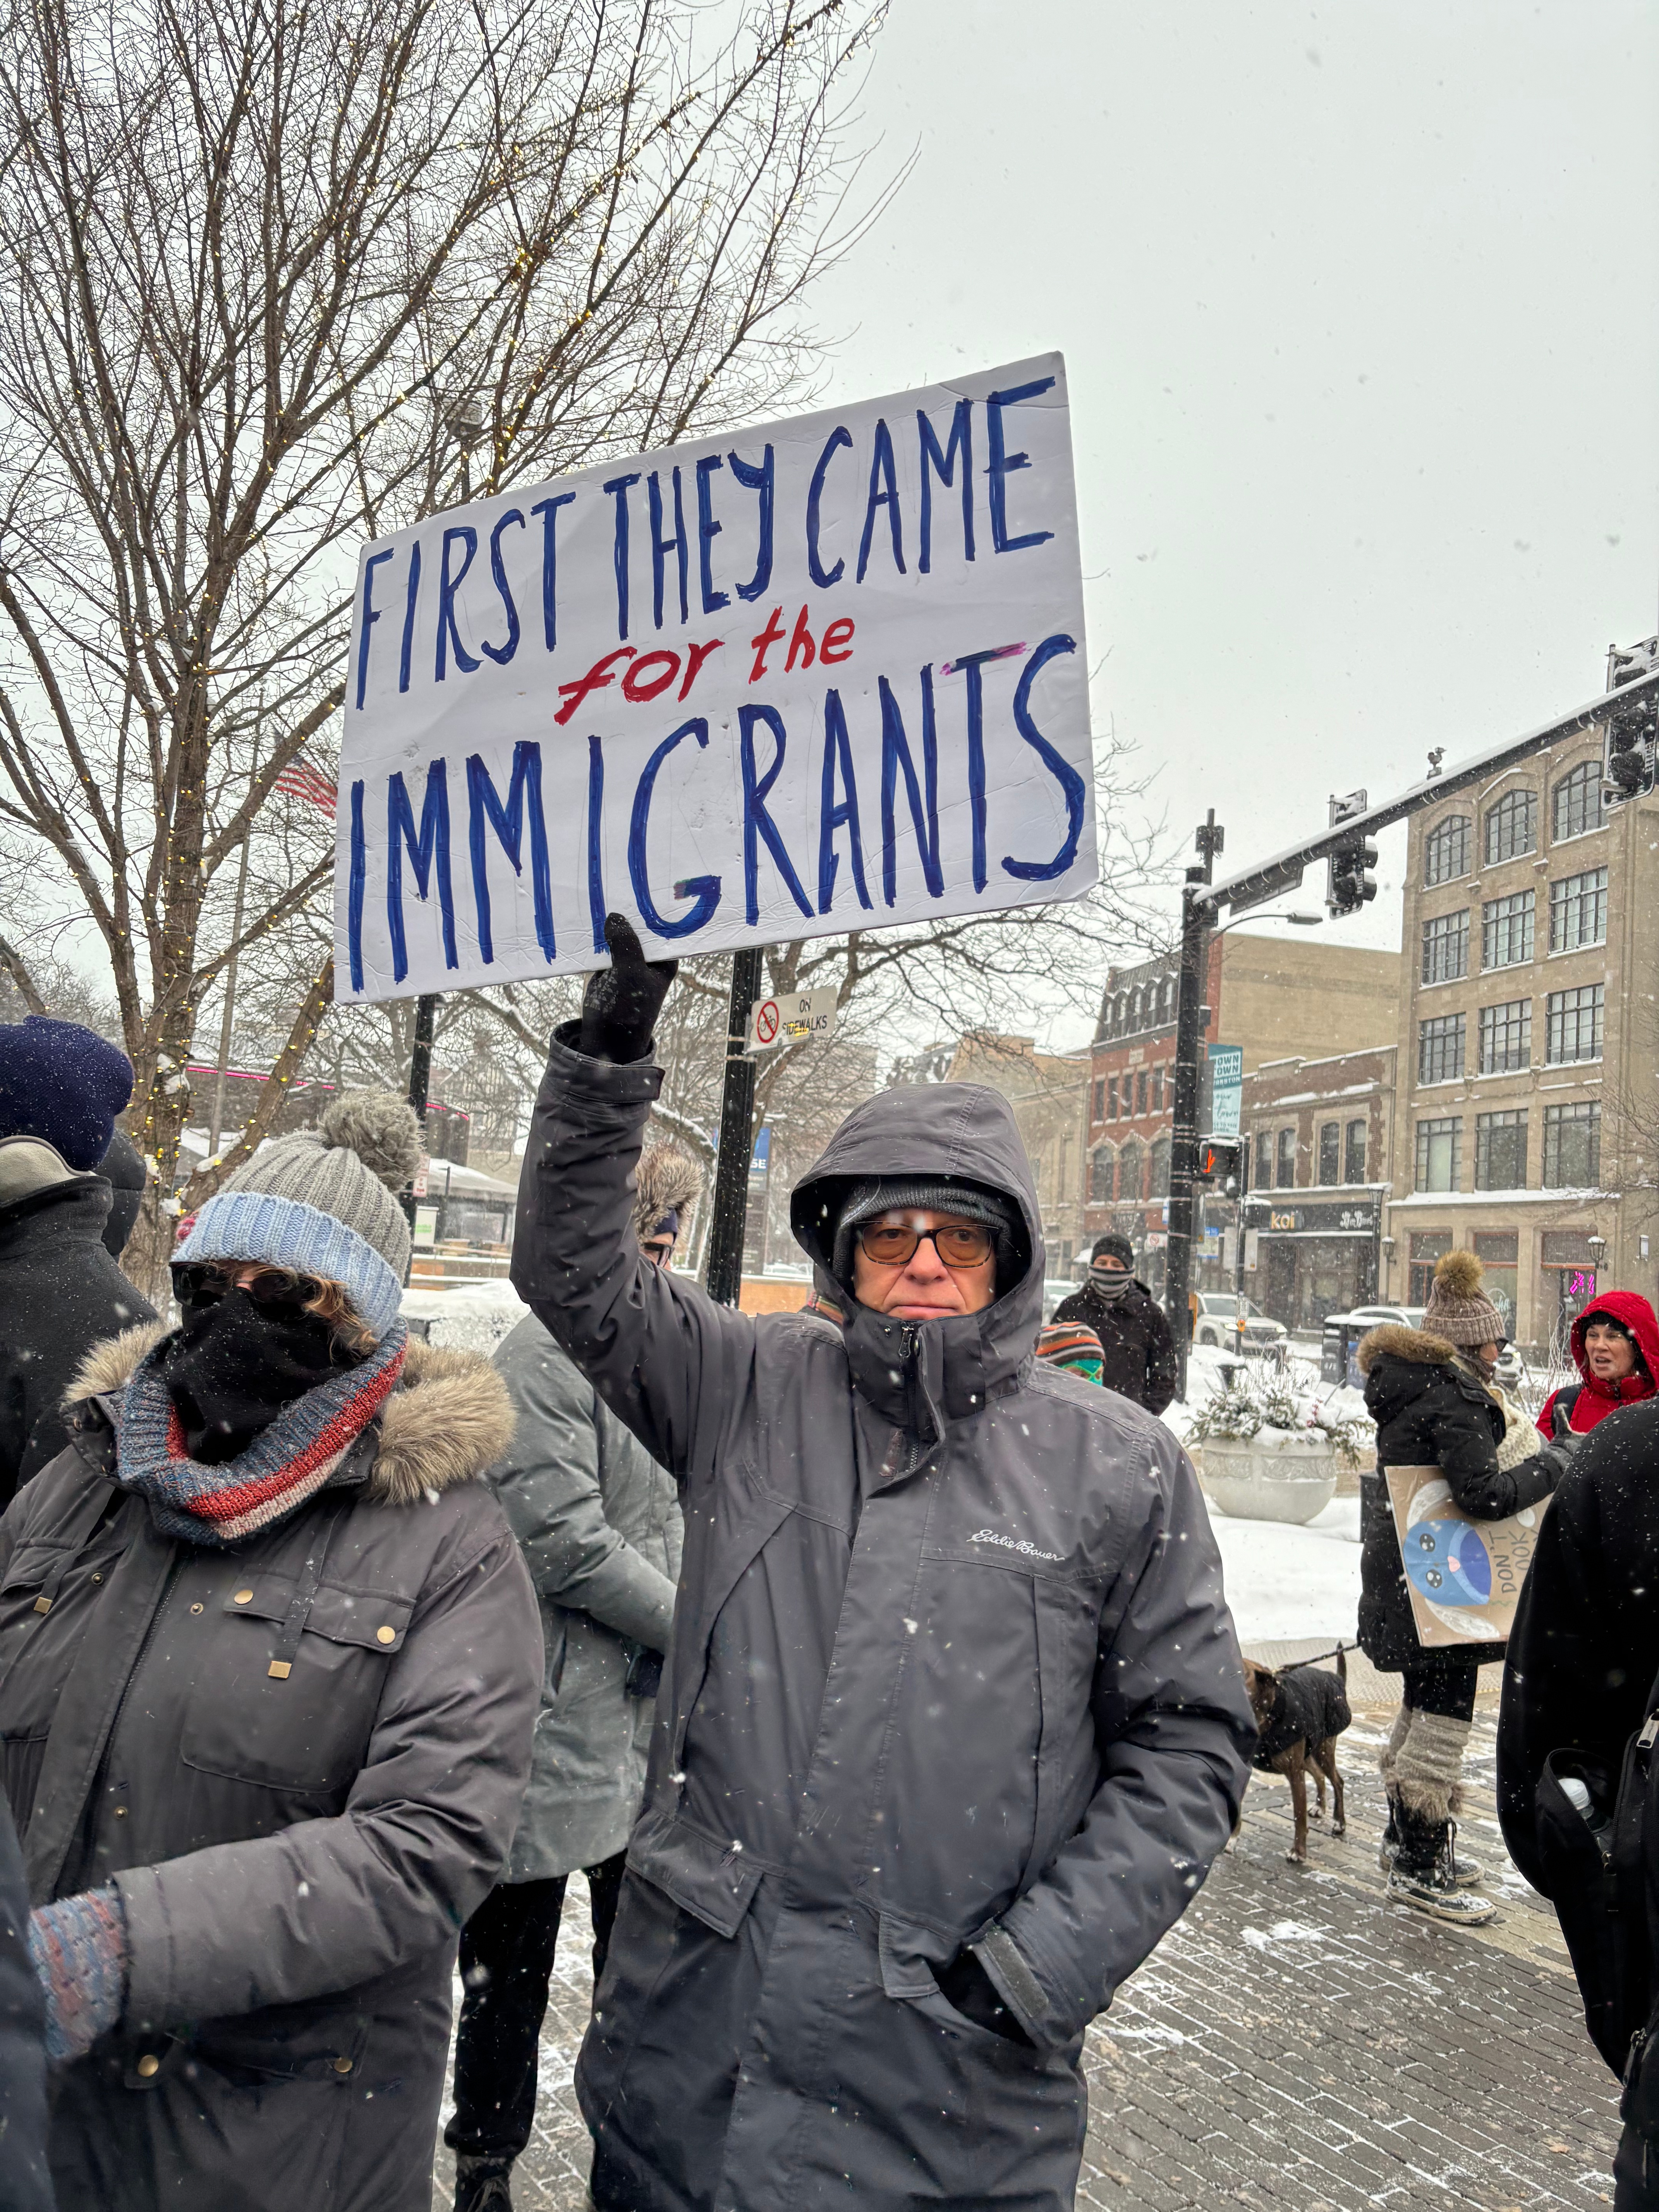 FIRST THEY CAME
for the
IMMIGRANTS
ON
SIDEWALKS
SE
koi
Eddie Bauer
DON'T